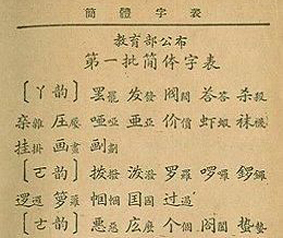 簡體字表
教育部公布
第一批简体字表
〔ㄚ韵〕罢罷 发發 阀閥 荅答 杀殺
杂雜 压壓 哑啞 亚亞 价價 虾蝦 袜襪
挂掛 画畫 㓰劃
〔ㄛ韵〕拨撥 泼潑 罗羅 啰囉 锣鑼
逻邏 箩籮 帼幗 囯國 过過
〔ㄜ韵〕恶惡 庅麽 个個 阁閣 蛰蟄